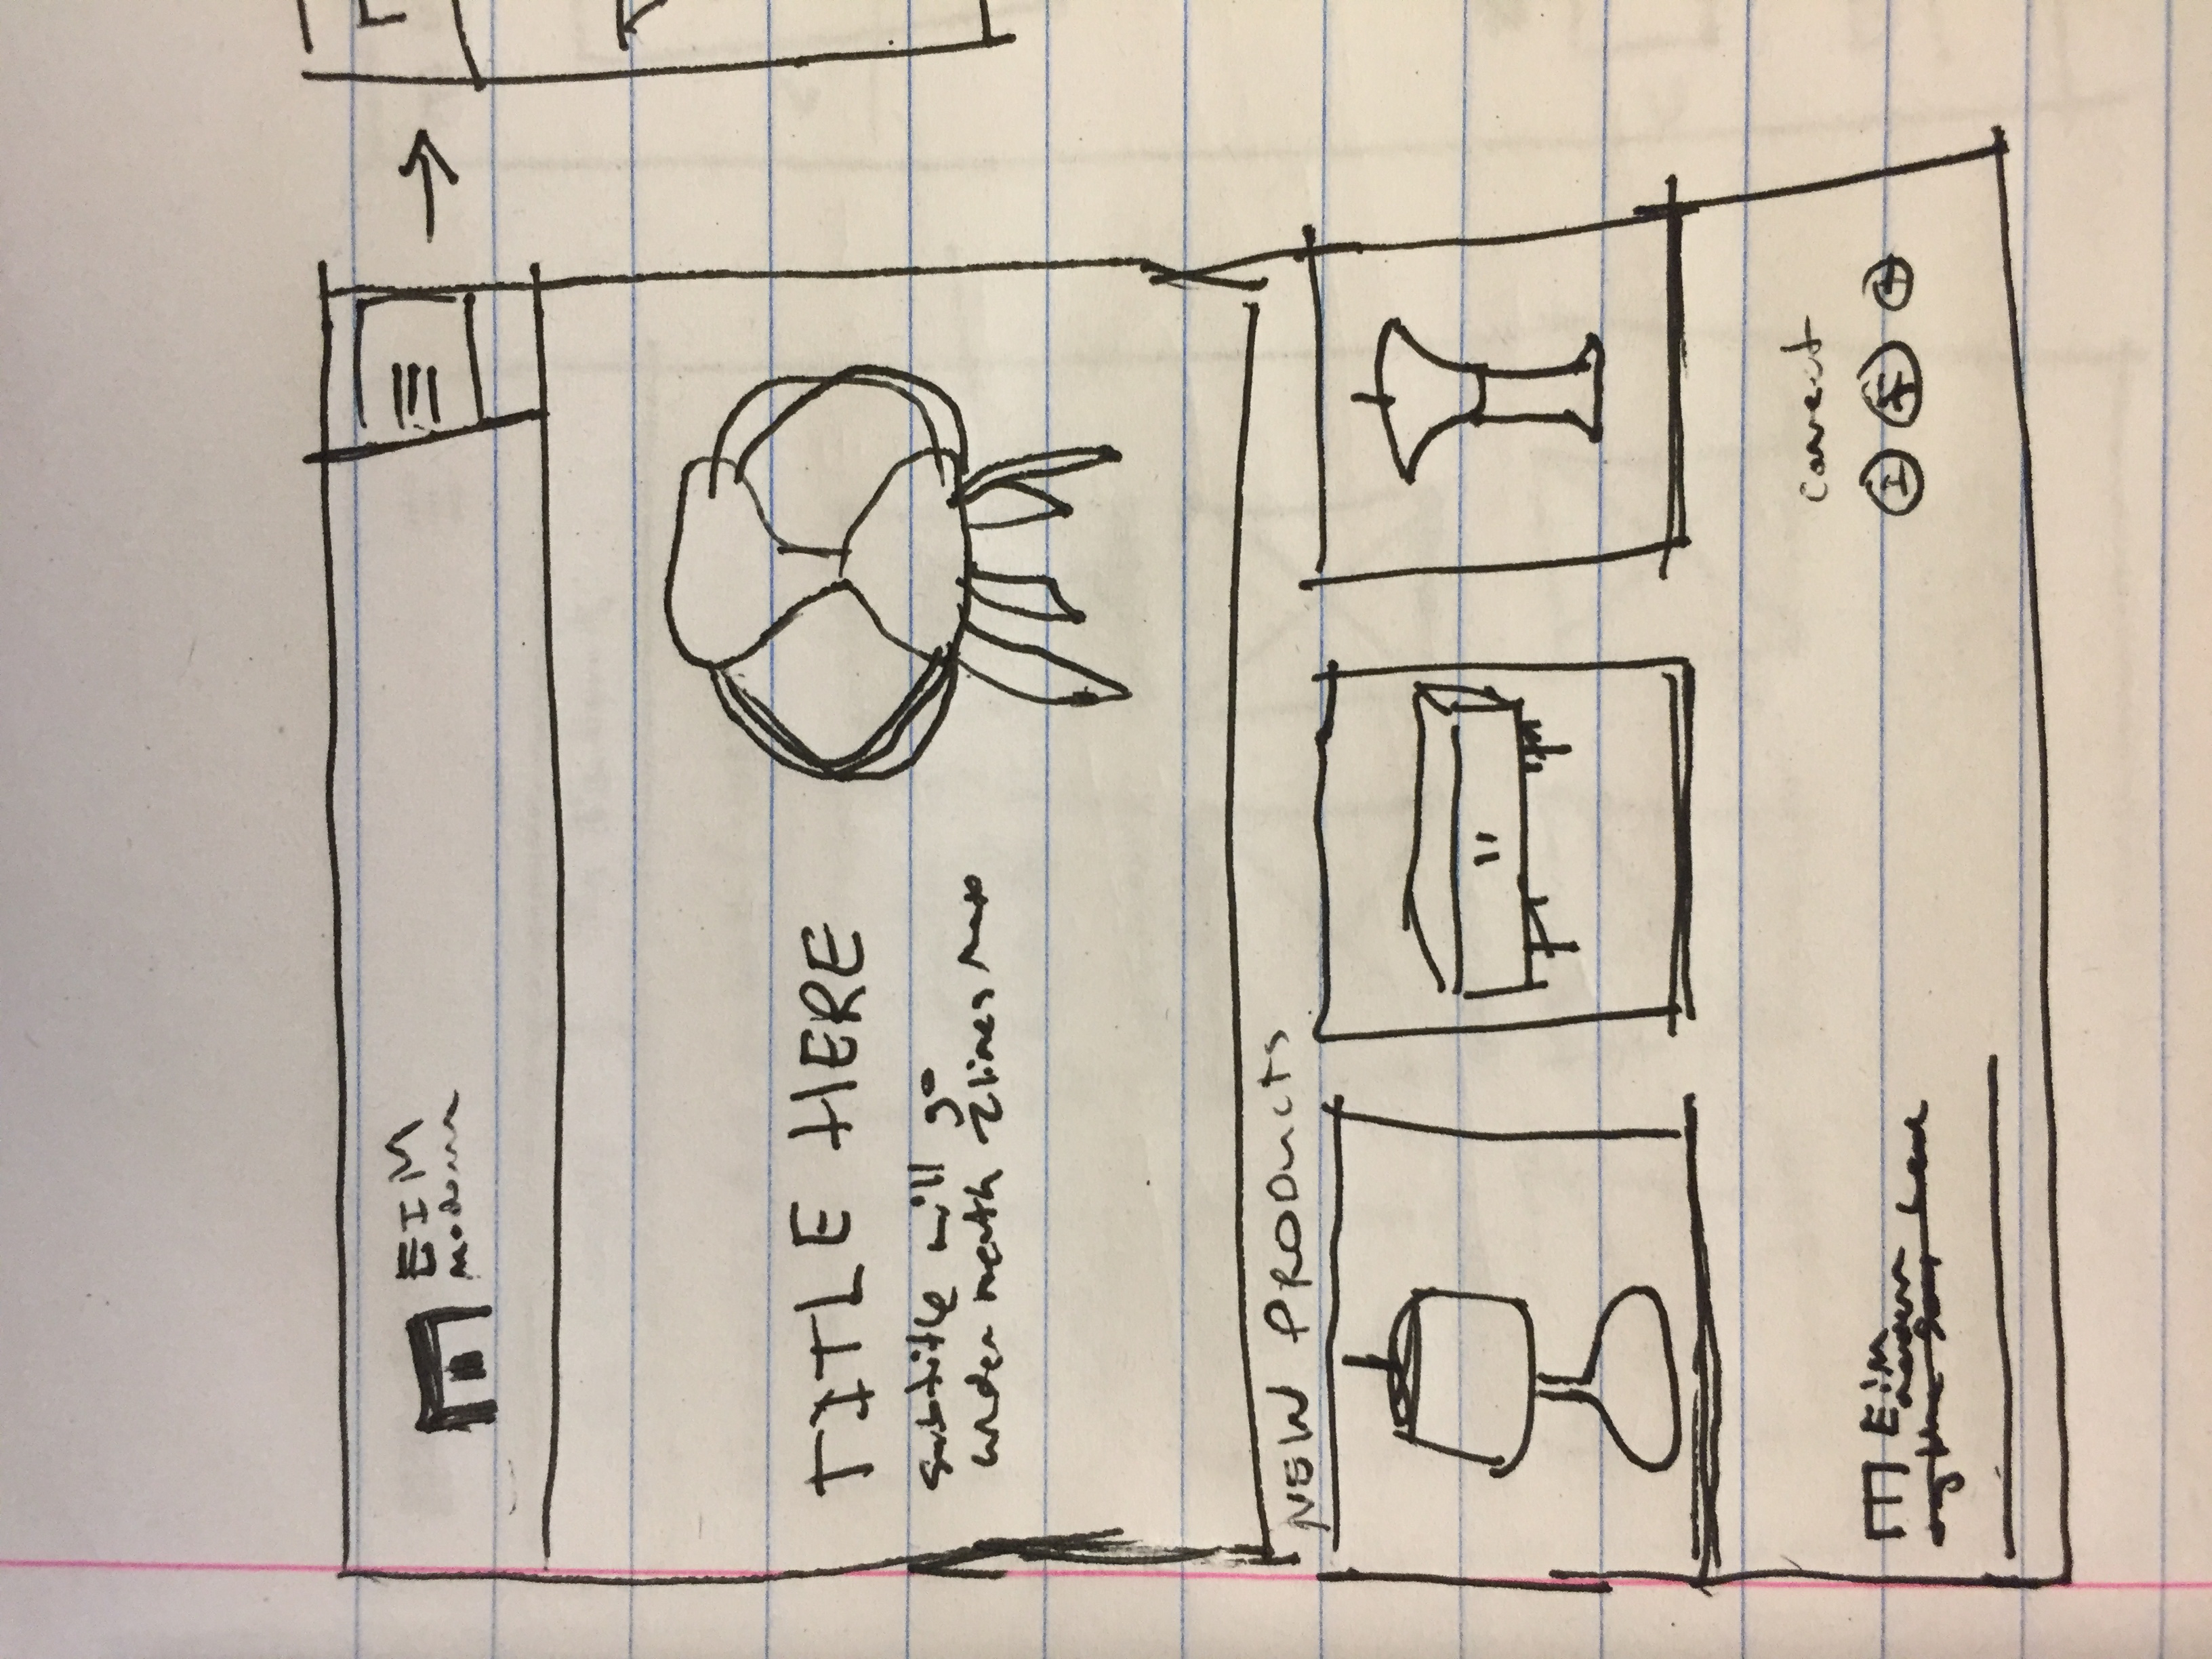 EIM
modern
TITLE HERE
subtitle will go
underneath 2 lines max
NEW PRODUCTS
connect
EIM
modern
I F